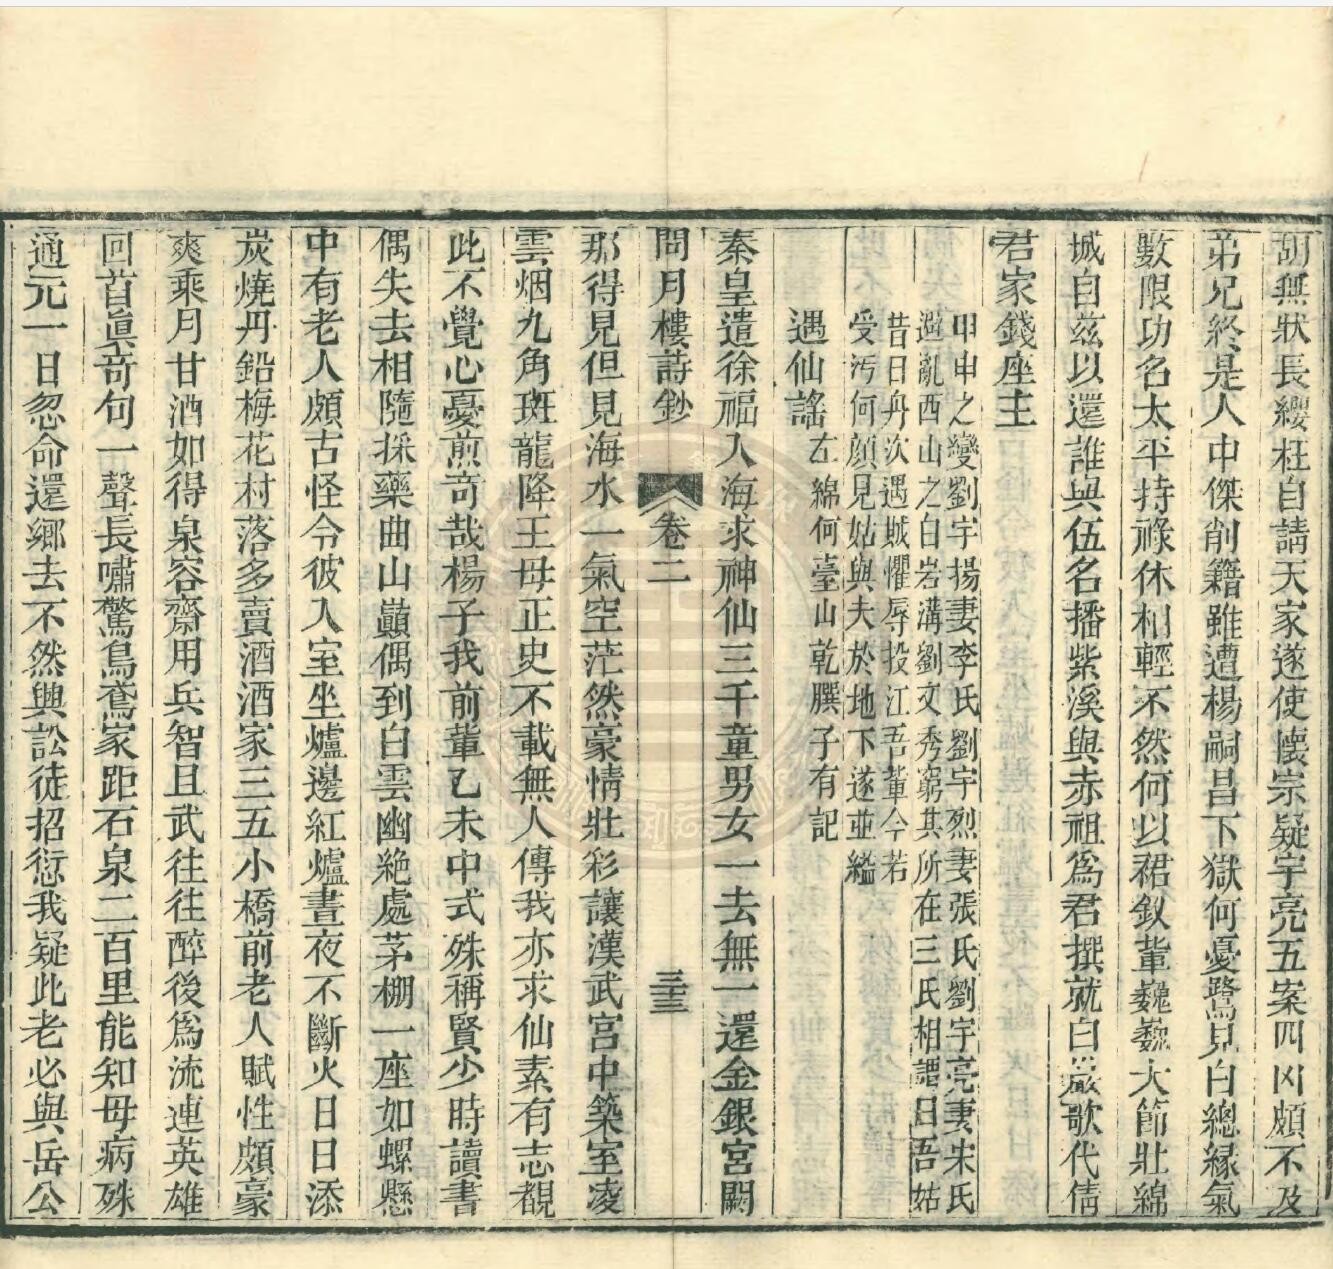 胡無狀長纓枉自請天家遂使懷宗疑宇亮五案四凶頗不及
弟兄終是人中傑削籍雖遭楊嗣昌下獄何憂鷺見白總緣氣
數限功名太平持祿休相輕不然何以裙釵輩巍巍大節壯綿
城自茲以還誰與伍名播紫溪與赤祖爲君撰就白巖歌代倩
君家錢座主
甲申之變劉宇揚妻李氏劉宇烈妻張氏劉宇亮妻宋氏
避亂西山之白岩溝劉文秀窮其所在三氏相謂曰吾姑
昔日舟次遇賊懼辱投江吾輩今若
受污何顏見姑與夫於地下遂並縊
左綿何臺山乾䐢子有記
遇仙謠
秦皇遣徐福入海求神仙三千童男女一去無一還金銀宮闕
問月樓詩鈔 卷二 三十三
那得見但見海水一氣空茫然豪情壯彩讓漢武宮中築室凌
雲烟九角斑龍降王母正史不載無人傳我亦求仙素有志覩
此不覺心憂煎奇哉楊子我前輩乙未中式殊稱賢少時讀書
偶失去相隨採藥曲山巔偶到白雲幽絕處茅棚一座如螺懸
中有老人頗古怪令彼入室坐爐邊紅爐晝夜不斷火日日添
炭燒丹鉛梅花村落多賣酒酒家三五小橋前老人賦性頗豪
爽乘月甘酒如得泉容齋用兵智且武往往醉後爲流連英雄
回首眞奇句一聲長嘯驚鳥鳶家距石泉二百里能知母病殊
通元一日忽命還鄉去不然與訟徒招愆我疑此老必與岳公